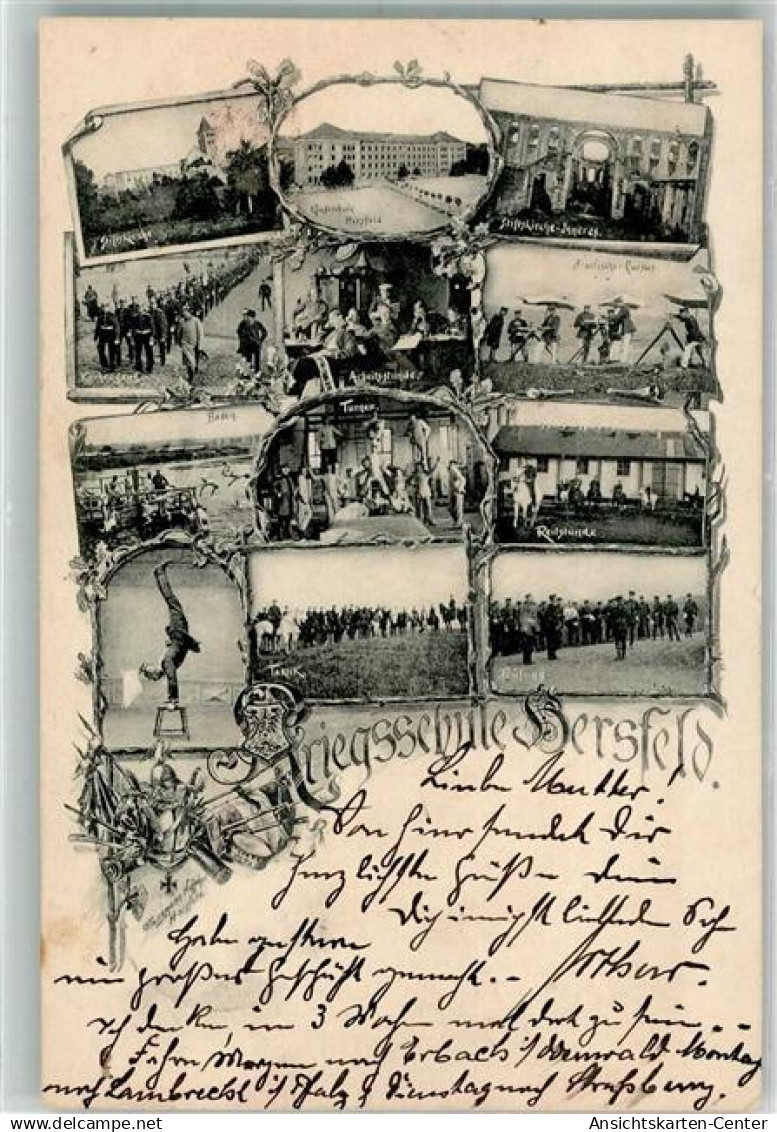 Stiftskirche
Kriegsschule
Hersfeld
Stiftskirche-Inneres.
Arbeitsstunde.
Baden.
Turnen.
Reitstunde.
Kriegsschule Hersfeld.
Liebe Mutter!
Von hier sendet Dir
herzlichste Grüße Dein
Dich innigst liebender Sohn
Arthur.
Habe gestern
ein großes Geschäft gemacht.-
ich denke, in 3 Wochen mal dort zu sein.--
Fahre Morgen nach Erbach i/Odenwald Montag
nach Lambrecht i/Pfalz & Dienstag nach Straßburg.
Ansichtskarten-Center